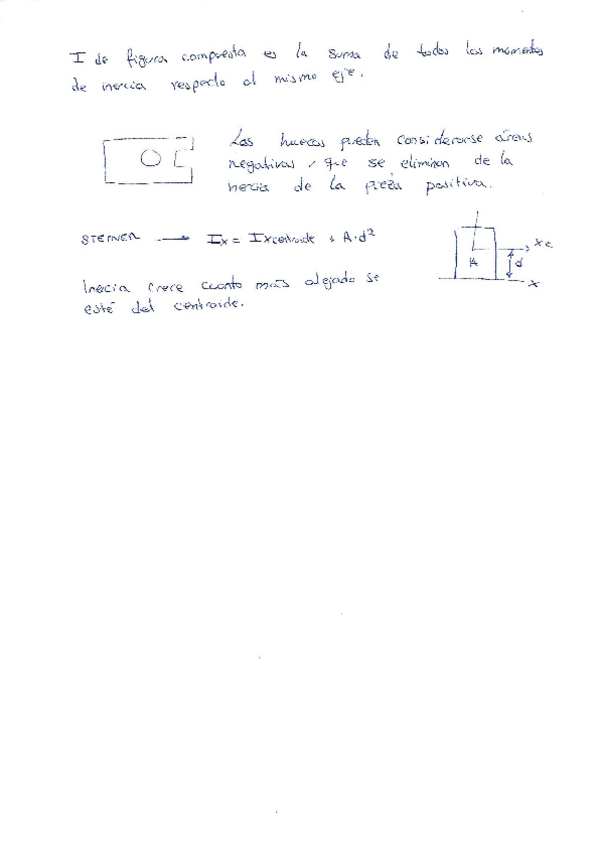 I de figura compuesta es la suma de todos los momentos
de inercia respecto al mismo eje.
Los huecos pueden considerarse áreas
negativas, que se eliminan de la
inercia de la pieza positiva.
STEINER → Ix = Ixcentroide + A·d²
xc
A
d
x
Inercia crece cuanto más alejado se
esté del centroide.